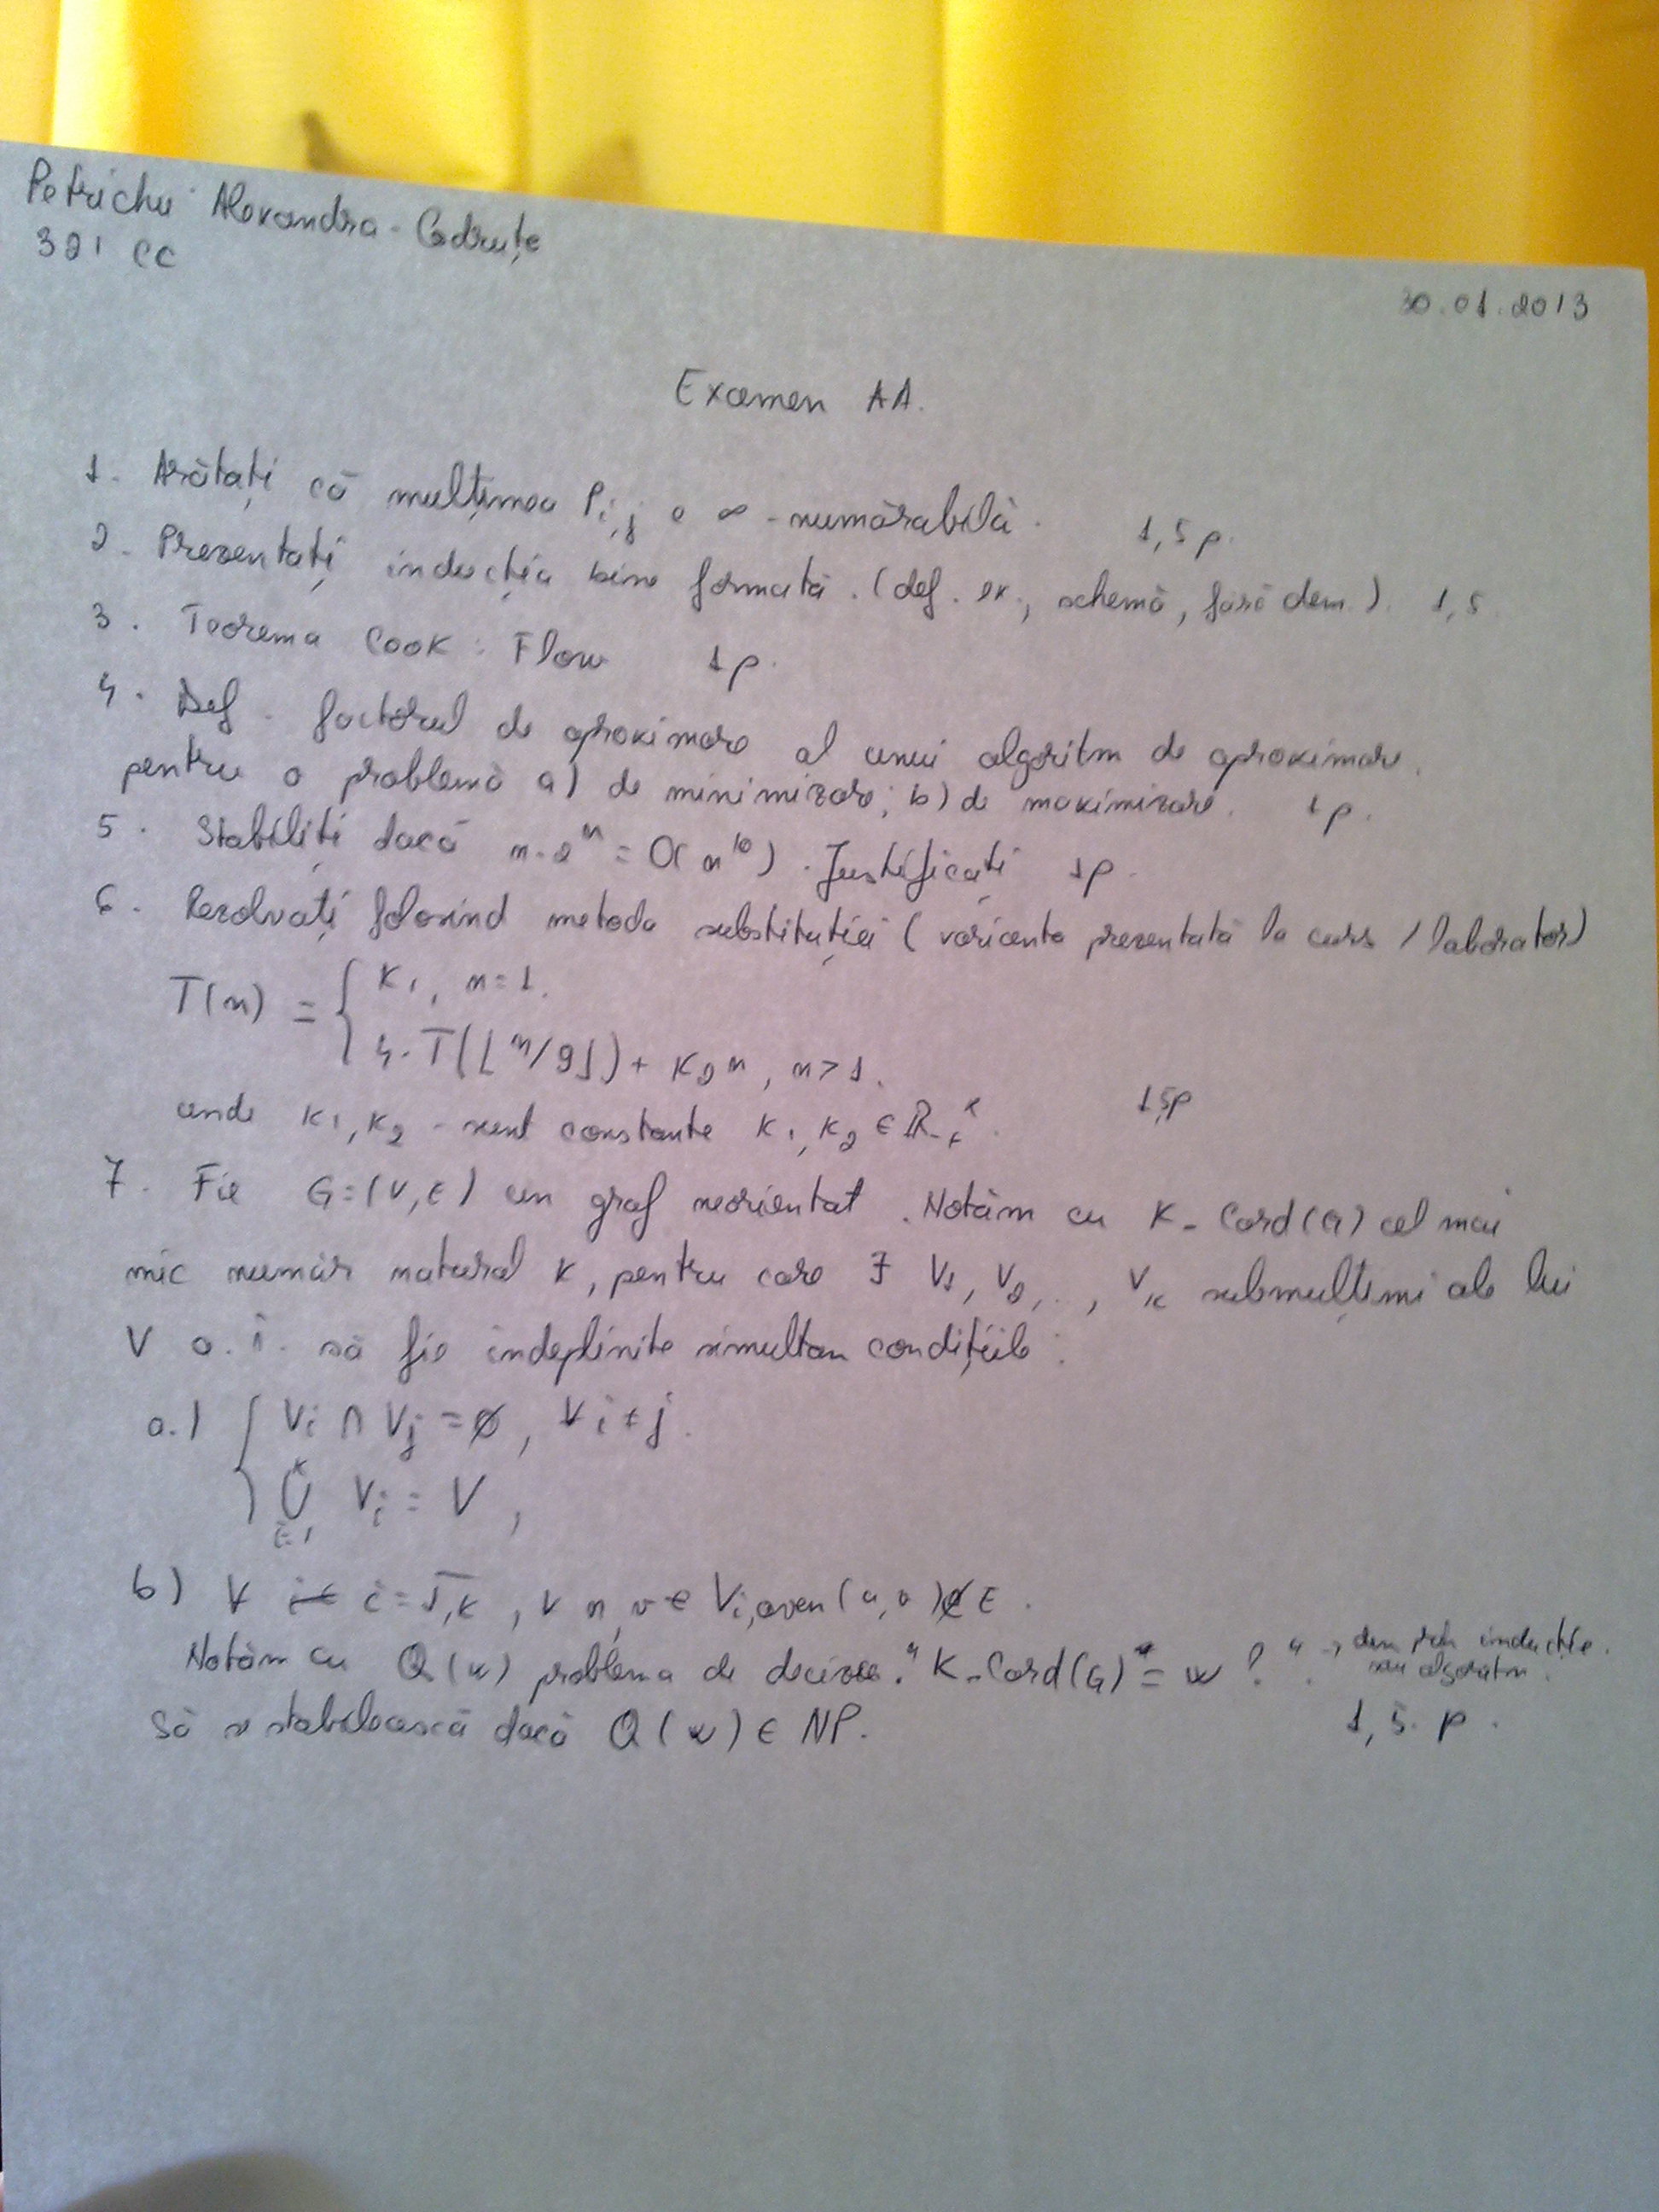 Petrichu Alexandra-Codruțe
321 CC
30.01.2013
Examen AA.
1. Arătați că mulțimea Pi,j e ∞-numărabilă. 1,5 p.
2. Prezentați inducția bine formată. (def. ex., schemă, fără dem.). 1,5.
3. Teorema Cook: Flow 1p.
4. Def. factorul de aproximare al unui algoritm de aproximare.
pentru o problemă a) de minimizare; b) de maximizare. 1p.
5. Stabiliți dacă n·2^n = O(n^10). Justificați 1p.
6. Rezolvați folosind metoda substituției (varianta prezentată la curs / laborator)
T(n) = { K1, n=1.
4·T(⌊n/9⌋) + K2 n, n>1.
unde K1, K2 - sunt constante K1, K2 ∈ R+*. 1,5p
7. Fie G=(V,E) un graf neorientat. Notăm cu K-Cord(G) cel mai
mic număr natural K, pentru care ∃ V1, V2, .., VK submulțimi ale lui
V a.î. să fie îndeplinite simultan condițiile:
a.) { Vi ∩ Vj = ∅, ∀ i ≠ j.
⋃ i=1 K Vi = V,
b) ∀ i = 1,K, ∀ u, v ∈ Vi, aven (u,v) ∉ E.
Notăm cu Q(w) problema de decizie: "K-Cord(G) = w?". → dem prin inducție.
sau algoritm.
Să se stabilească dacă Q(w) ∈ NP. 1,5. p.